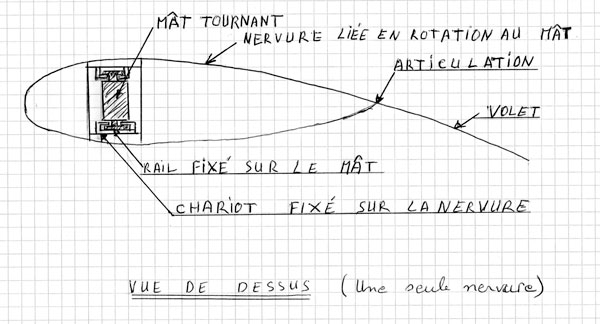 MÂT TOURNANT
NERVURE LIÉE EN ROTATION AU MÂT
ARTICULATION
VOLET
RAIL FIXÉ SUR LE MÂT
CHARIOT FIXÉ SUR LA NERVURE
VUE DE DESSUS (Une seule nervure)